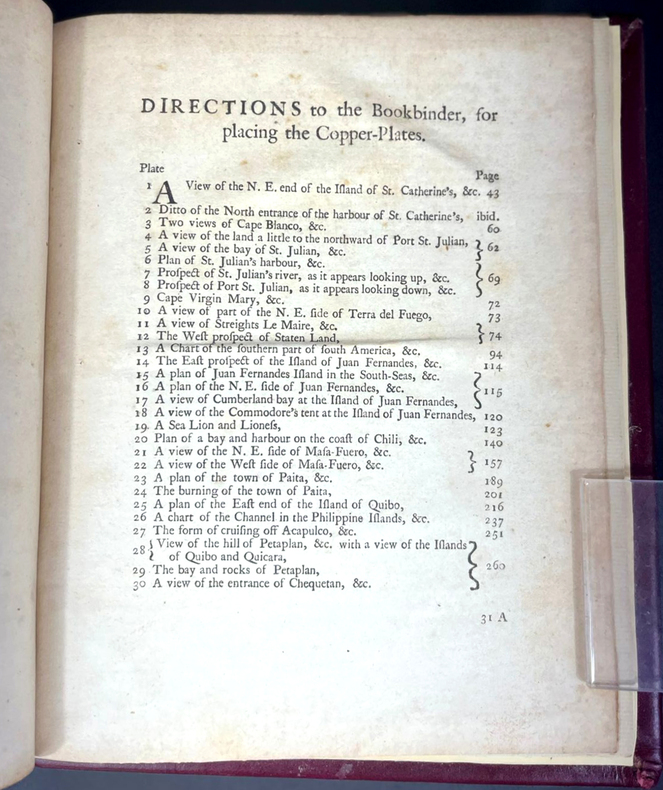 DIRECTIONS to the Bookbinder, for
placing the Copper-Plates.
Plate Page
1 A View of the N. E. end of the Iſland of St. Catherine's, &c. 43
2 Ditto of the North entrance of the harbour of St. Catherine's, ibid.
3 Two views of Cape Blanco, &c. 60
4 A view of the land a little to the northward of Port St. Julian,
5 A view of the bay of St. Julian, &c. } 62
6 Plan of St. Julian's harbour, &c.
7 Proſpect of St. Julian's river, as it appears looking up, &c. } 69
8 Proſpect of Port St. Julian, as it appears looking down, &c.
9 Cape Virgin Mary, &c. 72
10 A view of part of the N. E. ſide of Terra del Fuego, 73
11 A view of Streights Le Maire, &c.
12 The Weſt proſpect of Staten Land, } 74
13 A Chart of the ſouthern part of ſouth America, &c. 94
14 The Eaſt proſpect of the Iſland of Juan Fernandes, &c. 114
15 A plan of Juan Fernandes Iſland in the South-Seas, &c.
16 A plan of the N. E. ſide of Juan Fernandes, &c. } 115
17 A view of Cumberland bay at the Iſland of Juan Fernandes,
18 A view of the Commodore's tent at the Iſland of Juan Fernandes, 120
19 A Sea Lion and Lioneſs, 123
20 Plan of a bay and harbour on the coaſt of Chili, &c. 140
21 A view of the N. E. ſide of Maſa-Fuero, &c.
22 A view of the Weſt ſide of Maſa-Fuero, &c. } 157
23 A plan of the town of Paita, &c. 189
24 The burning of the town of Paita, 201
25 A plan of the Eaſt end of the Iſland of Quibo, 216
26 A chart of the Channel in the Philippine Iſlands, &c. 237
27 The form of cruiſing off Acapulco, &c. 251
28 { View of the hill of Petaplan, &c. with a view of the Iſlands
of Quibo and Quicara,
29 The bay and rocks of Petaplan, } 260
30 A view of the entrance of Chequetan, &c.
31 A